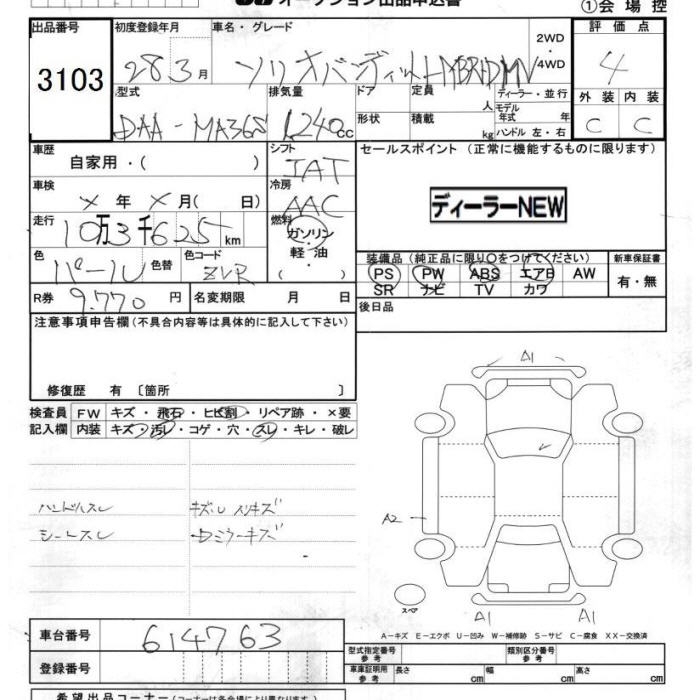 オークション出品申込書
①会場控
出品番号 初度登録年月 車名・グレード 評価点
3103 28 3月 ソリオバンディット HYBRID MV 2WD 4WD 4
型式 排気量 ドア 定員 人 ディーラー・並行 外装 内装
DAA-MA36S 1240cc 形状 積載 kg モデル年式 年 ハンドル 左・右 C C
車歴 自家用・( ) シフト IAT セールスポイント (正常に機能するものに限ります)
車検 × 年 × 月( 日) 冷房 AAC ディーラーNEW
走行 10万3千625km 燃料 ガソリン・軽油・( )
色 パール 色替 色コード ZVR 装備品 (純正品に限り○をつけてください) 新車保証書
PS PW ABS エアB AW 有・無
SR ナビ TV カワ
R券 9.770円 名変期限 月 日 後日品
注意事項申告欄(不具合内容等は具体的に記入して下さい)
修復歴 有 〔箇所 〕
検査員 FW キズ・飛石・ヒビ割・リペア跡・×要
記入欄 内装 キズ・汚レ・コゲ・穴・スレ・キレ・破レ
ハンドルスレ
シートスレ
A1
A2
スペア
A1 A1
A-キズ E-エクボ U-凹み W-補修跡 S-サビ C-腐食 XX-交換済
車台番号 614763
登録番号
型式指定番号 参考 類別区分番号 参考
車庫証明用 参考 長さ cm 幅 cm 高さ cm
希望出品コーナー(コーナーは各会場により異なります。)